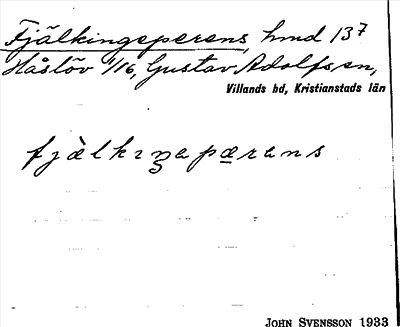 Fjälkingeperens, hmd 13⁷
Håslöv 1/16, Gustav Adolfs sn,
Villands hd, Kristianstads län
fjàlkıŋapærans
JOHN SVENSSON 1933